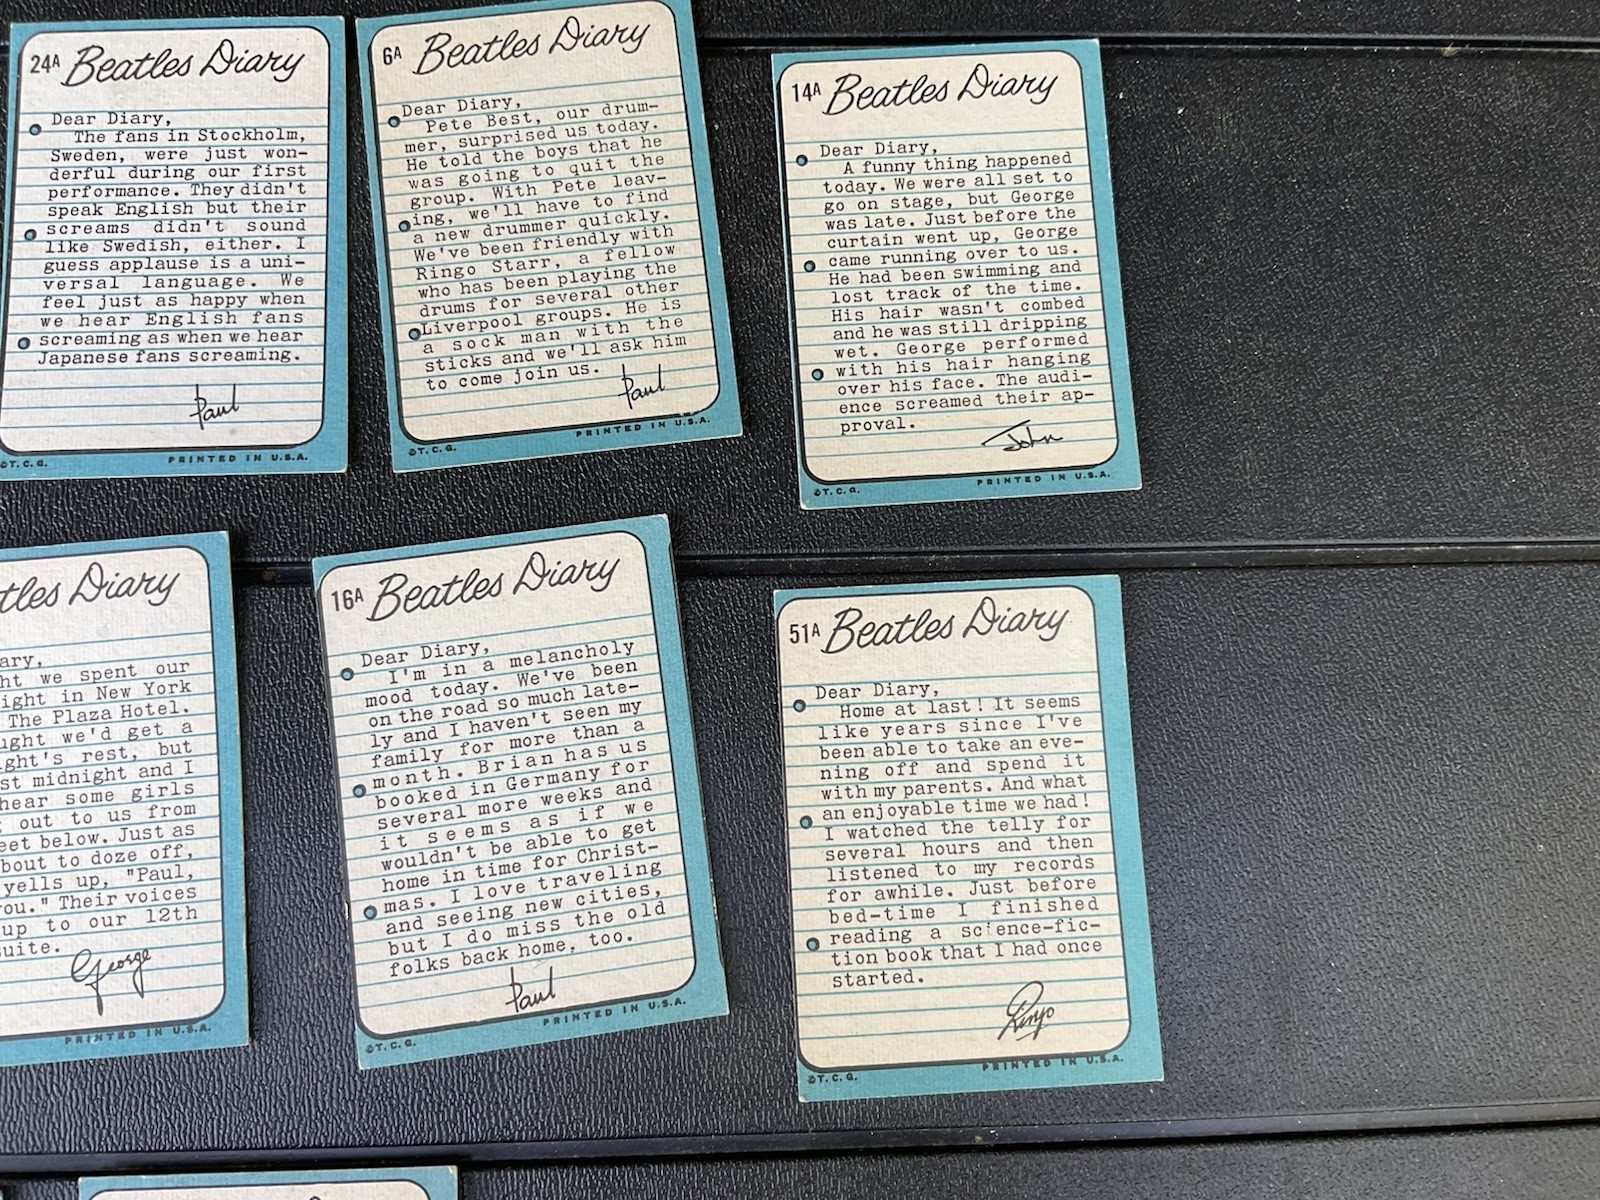 24A Beatles Diary
Dear Diary,
The fans in Stockholm,
Sweden, were just won-
derful during our first
performance. They didn't
speak English but their
screams didn't sound
like Swedish, either. I
guess applause is a uni-
versal language. We
feel just as happy when
we hear English fans
screaming as when we hear
Japanese fans screaming.
Paul
©T.C.G. PRINTED IN U.S.A.
6A Beatles Diary
Dear Diary,
Pete Best, our drum-
mer, surprised us today.
He told the boys that he
was going to quit the
group. With Pete leav-
ing, we'll have to find
a new drummer quickly.
We've been friendly with
Ringo Starr, a fellow
who has been playing the
drums for several other
Liverpool groups. He is
a sock man with the
sticks and we'll ask him
to come join us.
Paul
©T.C.G. PRINTED IN U.S.A.
14A Beatles Diary
Dear Diary,
A funny thing happened
today. We were all set to
go on stage, but George
was late. Just before the
curtain went up, George
came running over to us.
He had been swimming and
lost track of the time.
His hair wasn't combed
and he was still dripping
wet. George performed
with his hair hanging
over his face. The audi-
ence screamed their ap-
proval.
John
©T.C.G. PRINTED IN U.S.A.
tles Diary
ary,
ht we spent our
ight in New York
The Plaza Hotel.
ught we'd get a
ght's rest, but
st midnight and I
hear some girls
out to us from
eet below. Just as
bout to doze off,
yells up, "Paul,
ou." Their voices
up to our 12th
uite.
George
PRINTED IN U.S.A.
16A Beatles Diary
Dear Diary,
I'm in a melancholy
mood today. We've been
on the road so much late-
ly and I haven't seen my
family for more than a
month. Brian has us
booked in Germany for
several more weeks and
it seems as if we
wouldn't be able to get
home in time for Christ-
mas. I love traveling
and seeing new cities,
but I do miss the old
folks back home, too.
Paul
©T.C.G. PRINTED IN U.S.A.
51A Beatles Diary
Dear Diary,
Home at last! It seems
like years since I've
been able to take an eve-
ning off and spend it
with my parents. And what
an enjoyable time we had!
I watched the telly for
several hours and then
listened to my records
for awhile. Just before
bed-time I finished
reading a science-fic-
tion book that I had once
started.
Ringo
©T.C.G. PRINTED IN U.S.A.